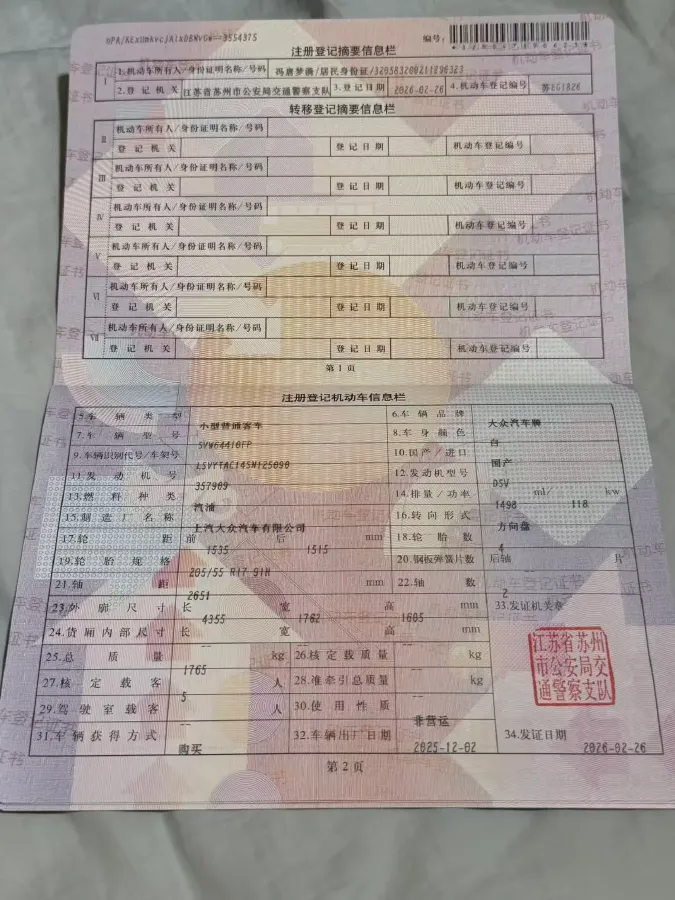 编号:
注册登记摘要信息栏
Ⅰ 1.机动车所有人/身份证明名称/号码 冯唐梦满/居民身份证/320583200211296323
2.登记机关 江苏省苏州市公安局交通警察支队 3.登记日期 2026-02-26 4.机动车登记编号
转移登记摘要信息栏
Ⅱ 机动车所有人/身份证明名称/号码
登记机关 登记日期 机动车登记编号
Ⅲ 机动车所有人/身份证明名称/号码
登记机关 登记日期 机动车登记编号
Ⅳ 机动车所有人/身份证明名称/号码
登记机关 登记日期 机动车登记编号
Ⅴ 机动车所有人/身份证明名称/号码
登记机关 登记日期 机动车登记编号
Ⅵ 机动车所有人/身份证明名称/号码
登记机关 登记日期 机动车登记编号
Ⅶ 机动车所有人/身份证明名称/号码
登记机关 登记日期 机动车登记编号
第1页
注册登记机动车信息栏
5.车辆类型 小型普通客车 6.车辆品牌 大众汽车牌
7.车辆型号 SVW6441DFP 8.车身颜色 白
9.车辆识别代号/车架号 10.国产/进口 国产
11.发动机号 357909 12.发动机型号 DSV
13.燃料种类 汽油 14.排量/功率 1498 ml/ 118 kw
15.制造厂名称 上汽大众汽车有限公司 16.转向形式 方向盘
17.轮距 前 1535 后 1515 mm 18.轮胎数 4
19.轮胎规格 205/55 R17 91H 20.钢板弹簧片数 后轴 -- 片
21.轴距 2651 mm 22.轴数 2
23.外廓尺寸 长 4355 宽 1762 高 1605 mm 33.发证机关章
24.货厢内部尺寸 长 -- 宽 -- 高 -- mm
江苏省苏州
市公安局交
通警察支队
25.总质量 1765 kg 26.核定载质量 -- kg
27.核定载客 5 人 28.准牵引总质量 -- kg
29.驾驶室载客 -- 人 30.使用性质 非营运
31.车辆获得方式 购买 32.车辆出厂日期 2025-12-02 34.发证日期 2026-02-26
第2页